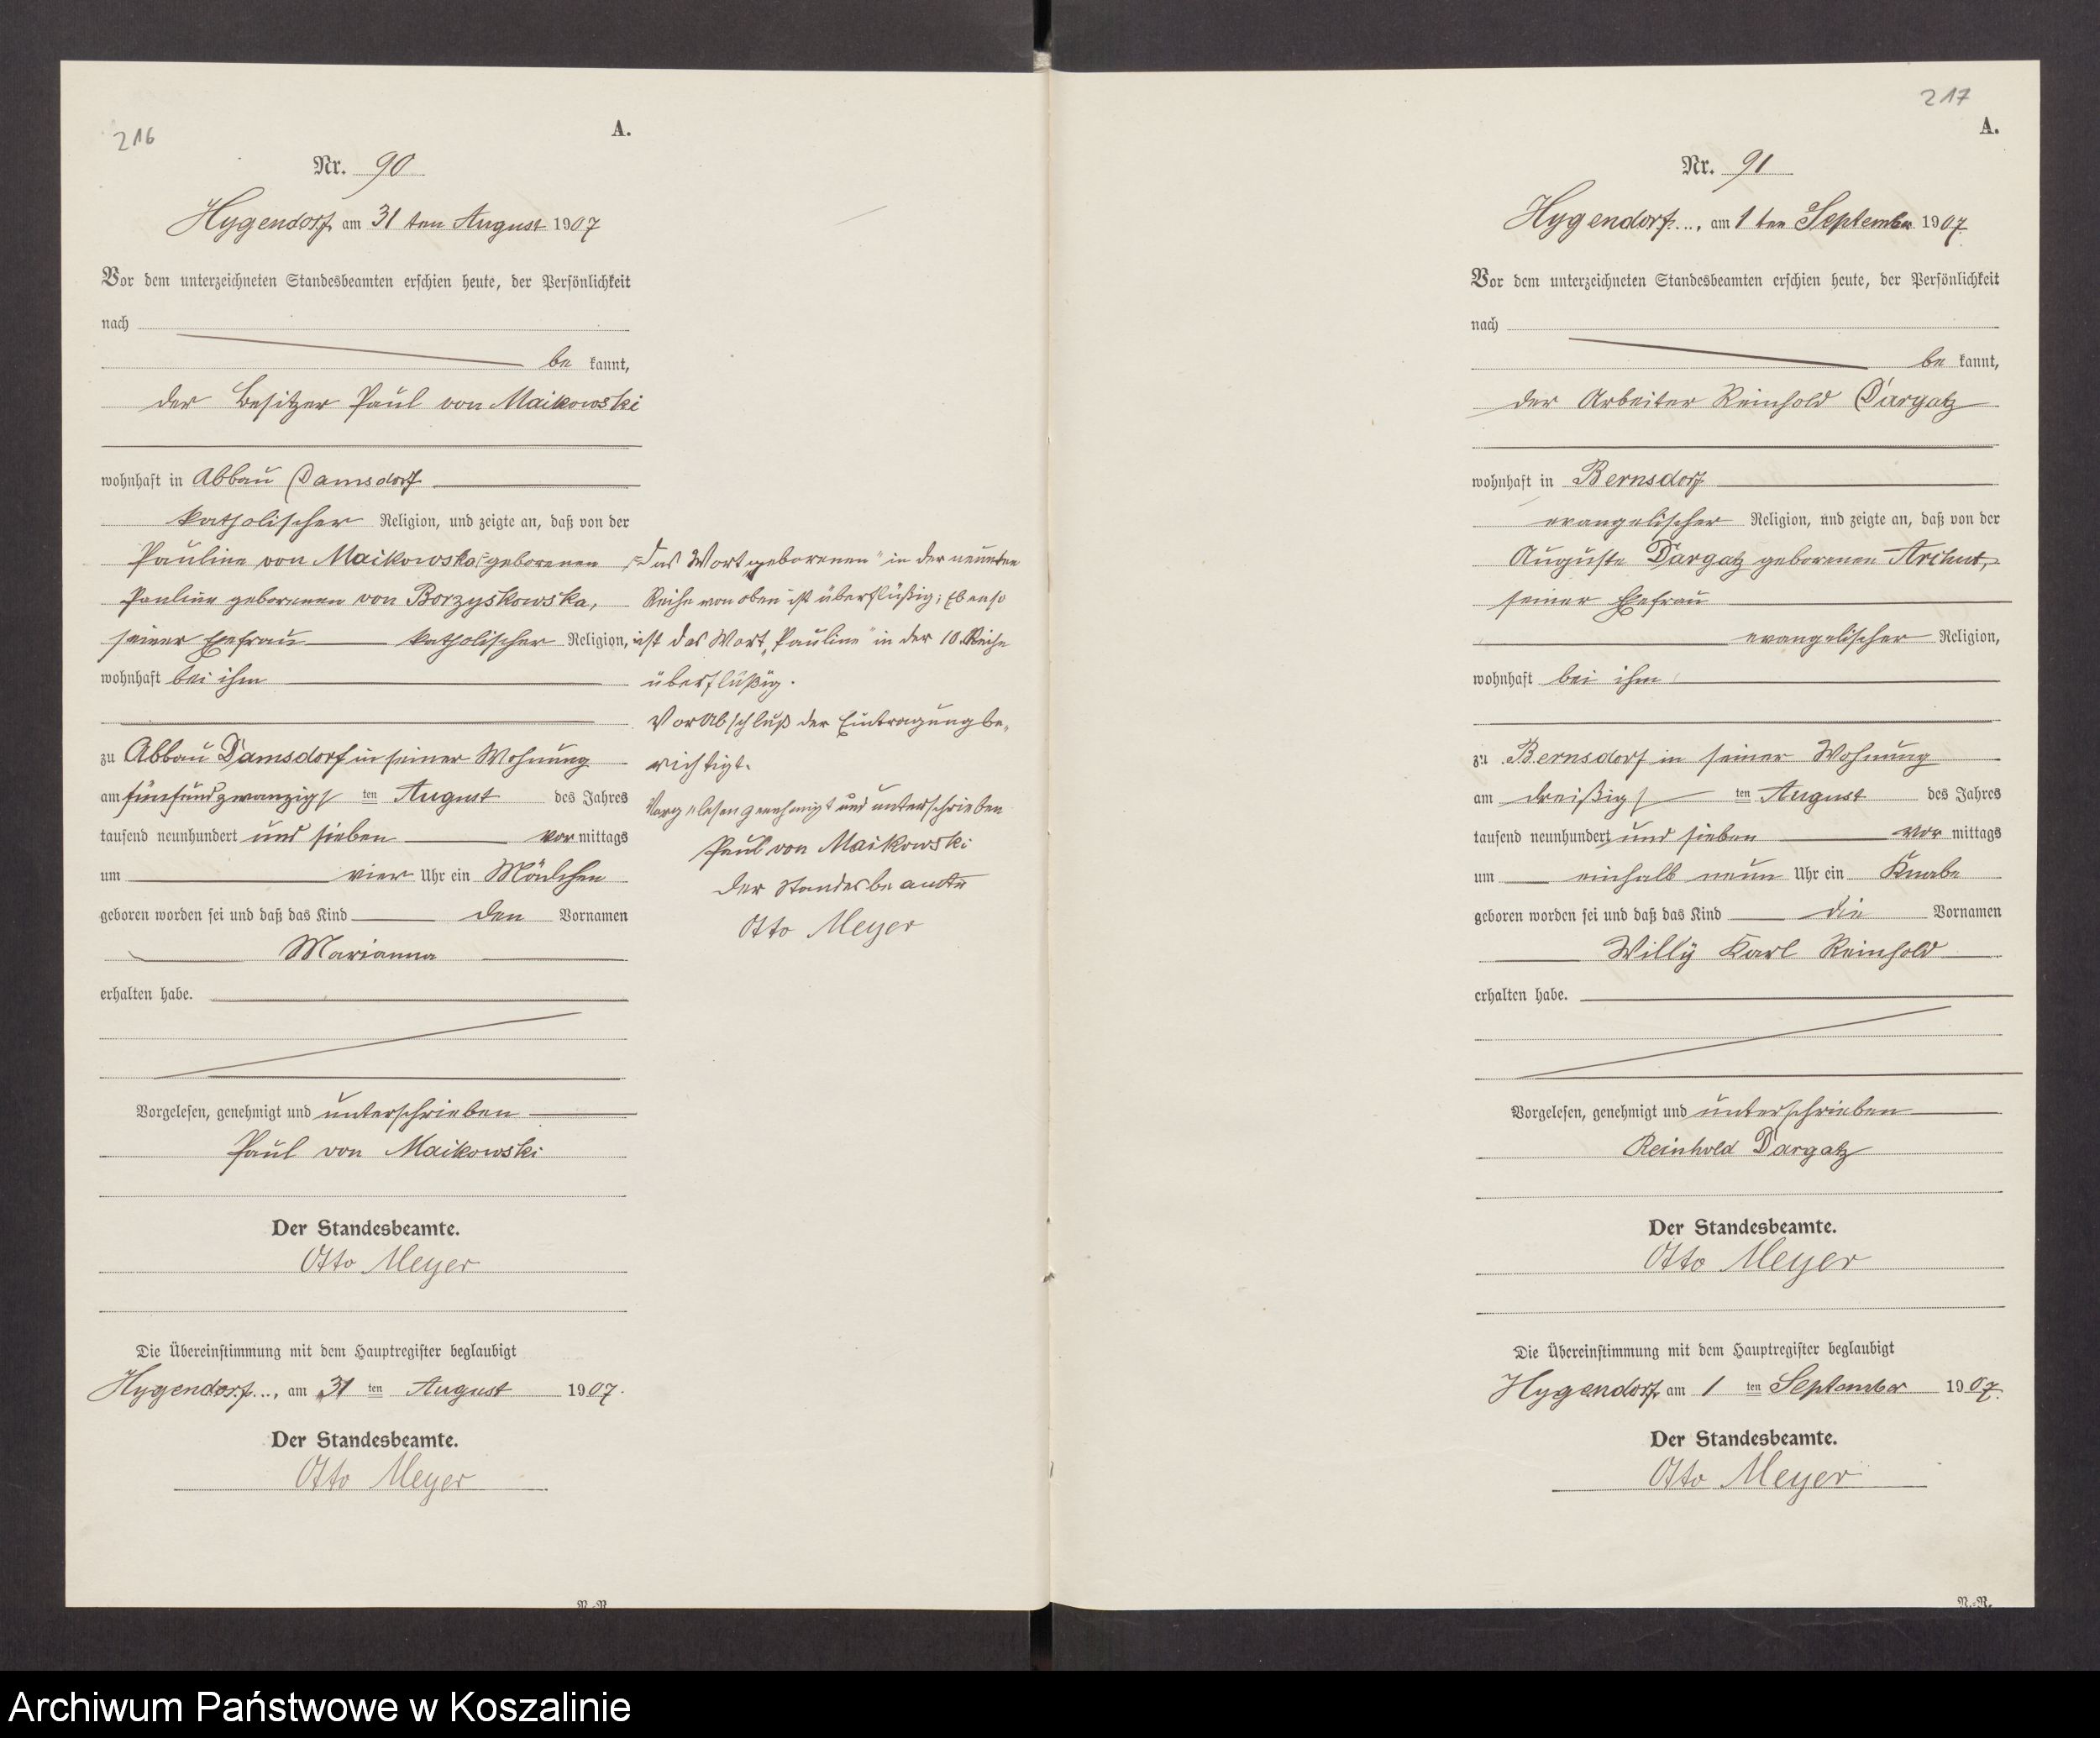 216
A.
Nr. 90
Hygendorf, am 31 ten August 1907
Vor dem unterzeichneten Standesbeamten erschien heute, der Persönlichkeit
nach
be kannt,
der Besitzer Paul von Maikowski
wohnhaft in Abbau Damsdorf
katholischer Religion, und zeigte an, daß von der
Pauline von Maikowska geborenen
Pauline geborenen von Borzyskowska,
seiner Ehefrau katholischer Religion,
wohnhaft bei ihm
zu Abbau Damsdorf in seiner Wohnung
am fünfundzwanzigs ten August des Jahres
tausend neunhundert und sieben vor mittags
um vier Uhr ein Mädchen
geboren worden sei und daß das Kind den Vornamen
Marianna
erhalten habe.
Vorgelesen, genehmigt und unterschrieben
Paul von Maikowski
Der Standesbeamte.
Otto Meyer
Die Übereinstimmung mit dem Hauptregister beglaubigt
Hygendorf..., am 31 ten August 1907.
Der Standesbeamte.
Otto Meyer
Das Wort „geborenen“ in der neunten
Reihe von oben ist überflüßig; Ebenso
ist das Wort „Pauline“ in der 10. Reihe
überflüßig.
Vor Abschluß der Eintragung be-
richtigt.
Vorgelesen genehmigt und unterschrieben
Paul von Maikowski
Der Standesbeamte
Otto Meyer
217
A.
Nr. 91
Hygendorf..., am 1 ten September 1907.
Vor dem unterzeichneten Standesbeamten erschien heute, der Persönlichkeit
nach
be kannt,
der Arbeiter Reinhold Dargatz
wohnhaft in Bernsdorf
evangelischer Religion, und zeigte an, daß von der
Auguste Dargatz geborenen Archut,
seiner Ehefrau
evangelischer Religion,
wohnhaft bei ihm
zu Bernsdorf in seiner Wohnung
am dreißigs ten August des Jahres
tausend neunhundert und sieben vor mittags
um einhalb neun Uhr ein Knabe
geboren worden sei und daß das Kind die Vornamen
Willÿ Karl Reinhold
erhalten habe.
Vorgelesen, genehmigt und unterschrieben
Reinhold Dargatz
Der Standesbeamte.
Otto Meyer
Die Übereinstimmung mit dem Hauptregister beglaubigt
Hygendorf, am 1 ten September 1907.
Der Standesbeamte.
Otto Meyer
N.-R.
Archiwum Państwowe w Koszalinie